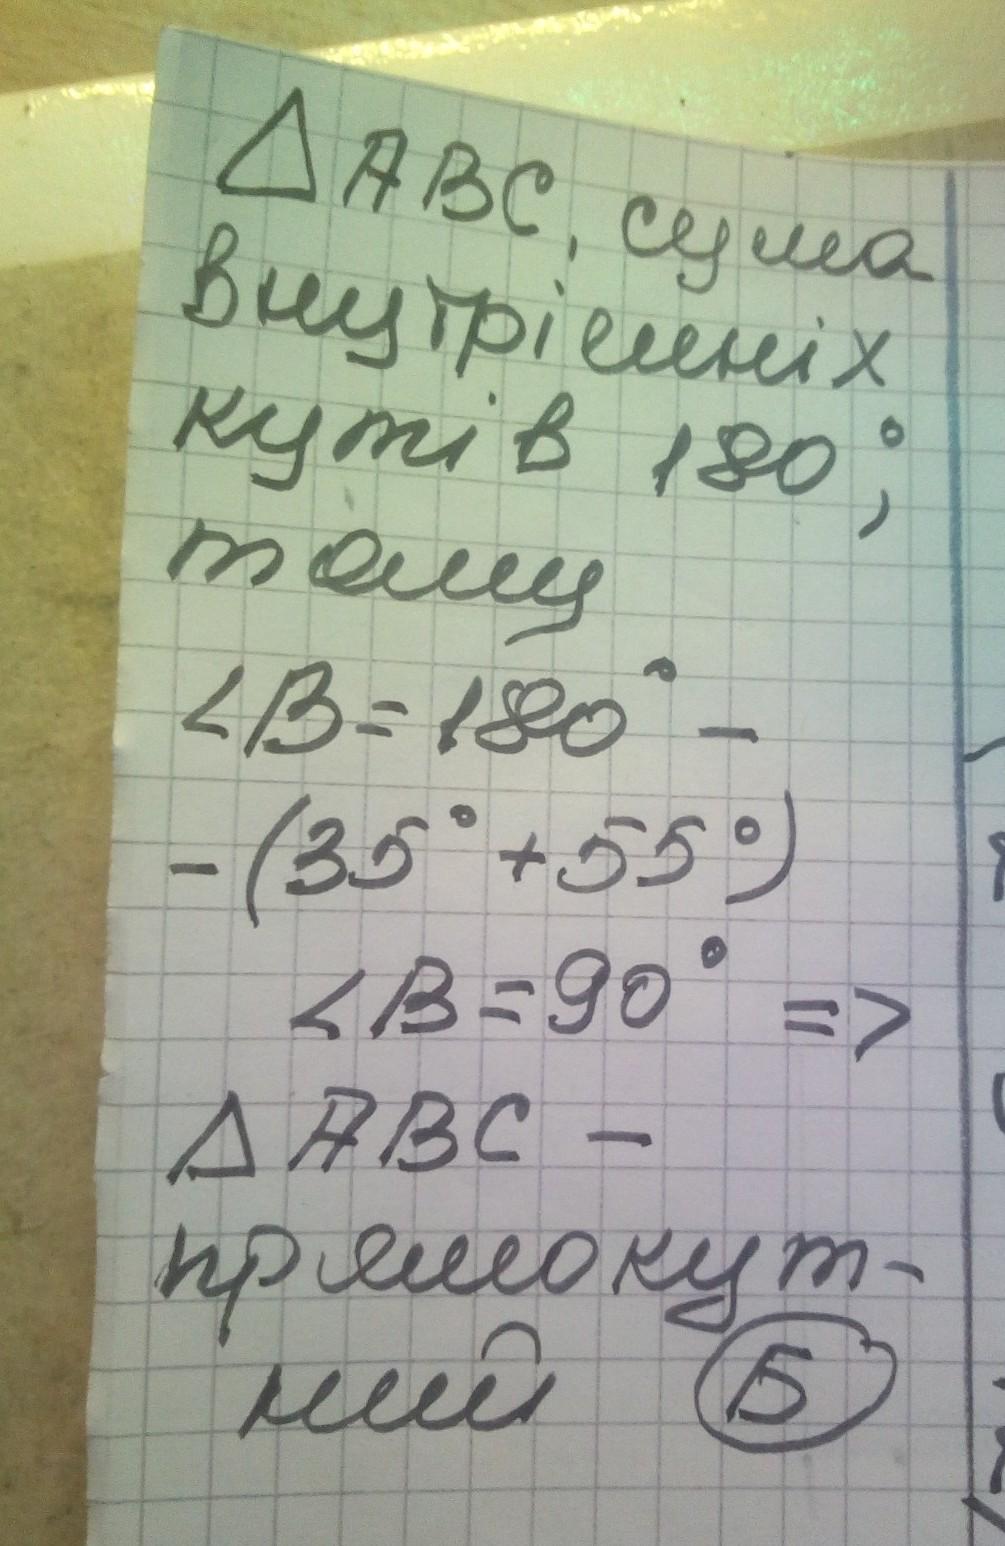 △ ABC, сума
внутрішніх
кутів 180°,
тому
∠B = 180° –
– (35° + 55°)
∠B = 90° =>
△ ABC –
прямокут-
ний Б